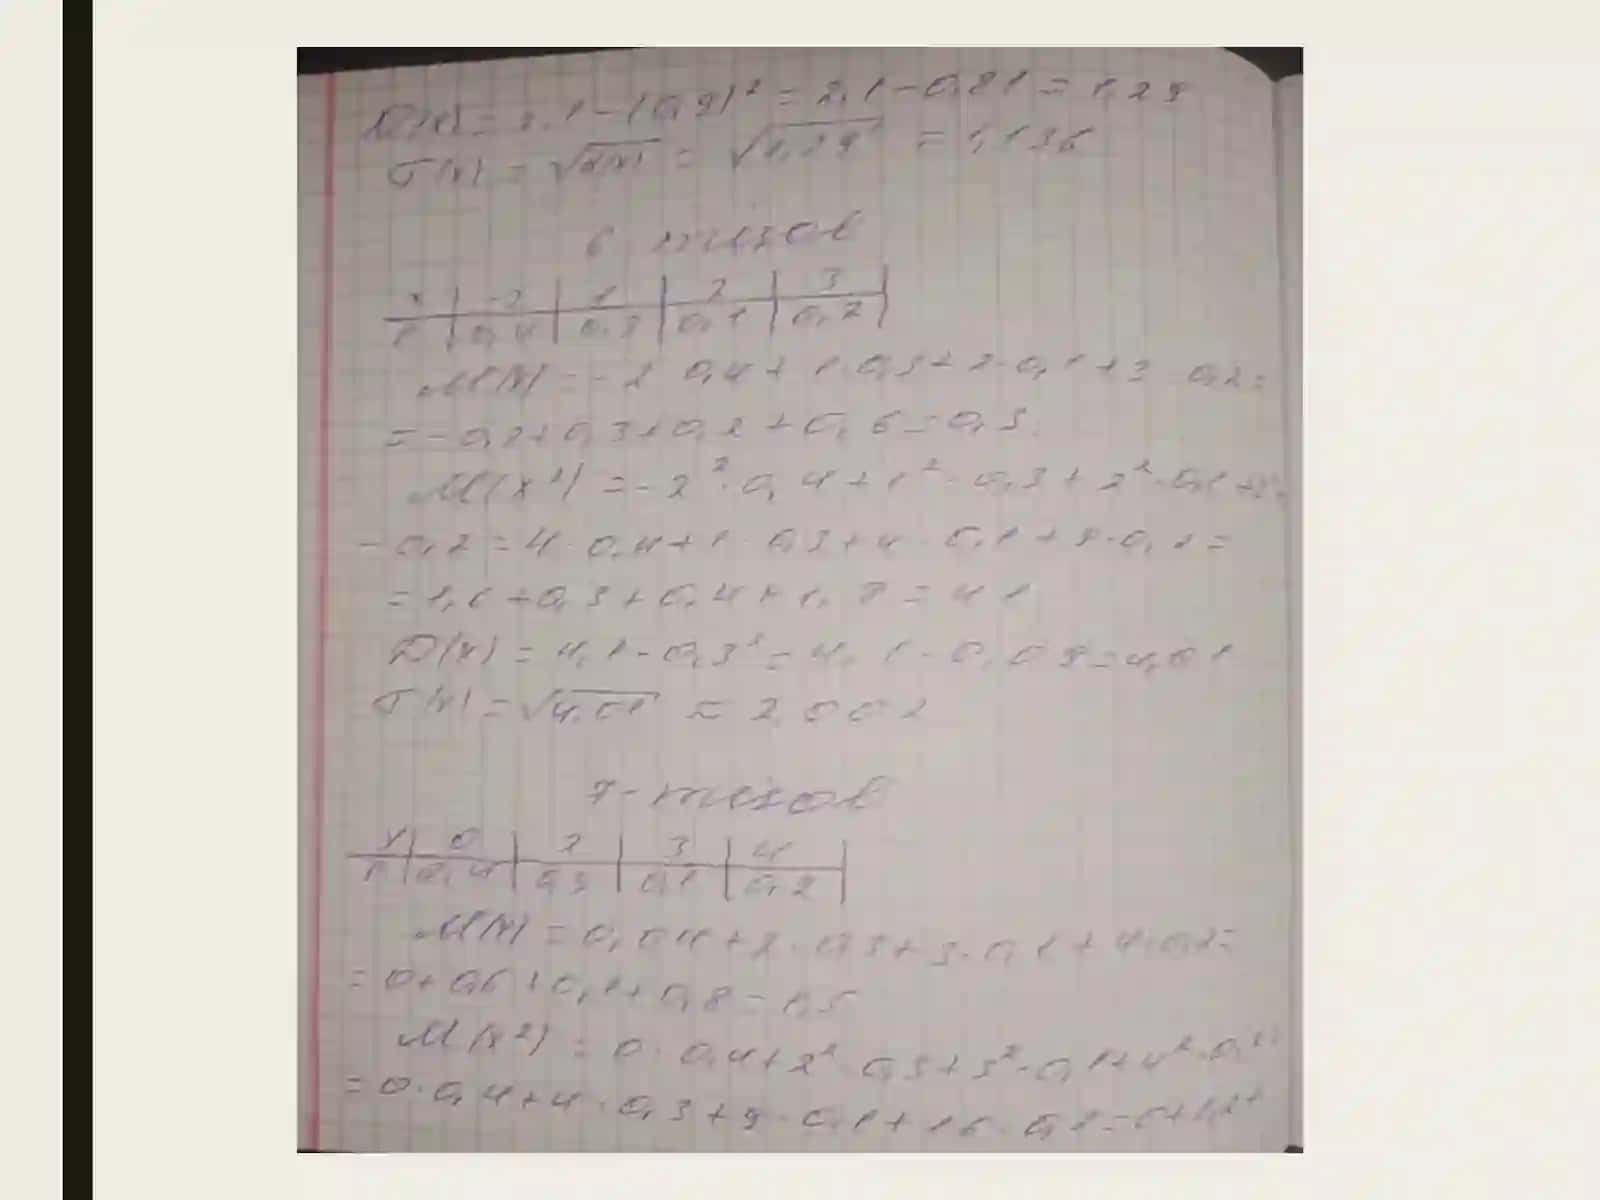 D(x) = 2.1 - (0,9)² = 2,1 - 0,81 = 1,29
σ(x) = √D(x) = √1,29 = 1,136
6 - misol
x | -2 | 1 | 2 | 3
p | 0,4 | 0,3 | 0,1 | 0,2
M(x) = -2 0,4 + 1·0,3 + 2·0,1 + 3·0,2 =
= -0,8 + 0,3 + 0,2 + 0,6 = 0,3.
M(x²) = -2²·0,4 + 1²·0,3 + 2²·0,1 + 3²·
·0,2 = 4·0,4 + 1·0,3 + 4·0,1 + 9·0,2 =
= 1,6 + 0,3 + 0,4 + 1,8 = 4 1
D(x) = 4,1 - 0,3² = 4,1 - 0,09 = 4,01
σ(x) = √4,01 ≈ 2,002
7 - misol
x | 0 | 2 | 3 | 4
p | 0,4 | 0,3 | 0,1 | 0,2
M(x) = 0,04 + 2·0,3 + 3·0,1 + 4·0,2 =
= 0 + 0,6 + 0,1 + 0,8 = 1,5
M(x²) = 0·0,4 + 2²·0,3 + 3²·0,1 + 4²·0,2
= 0·0,4 + 4·0,3 + 9·0,1 + 16·0,2 = 0 + 1,2 +